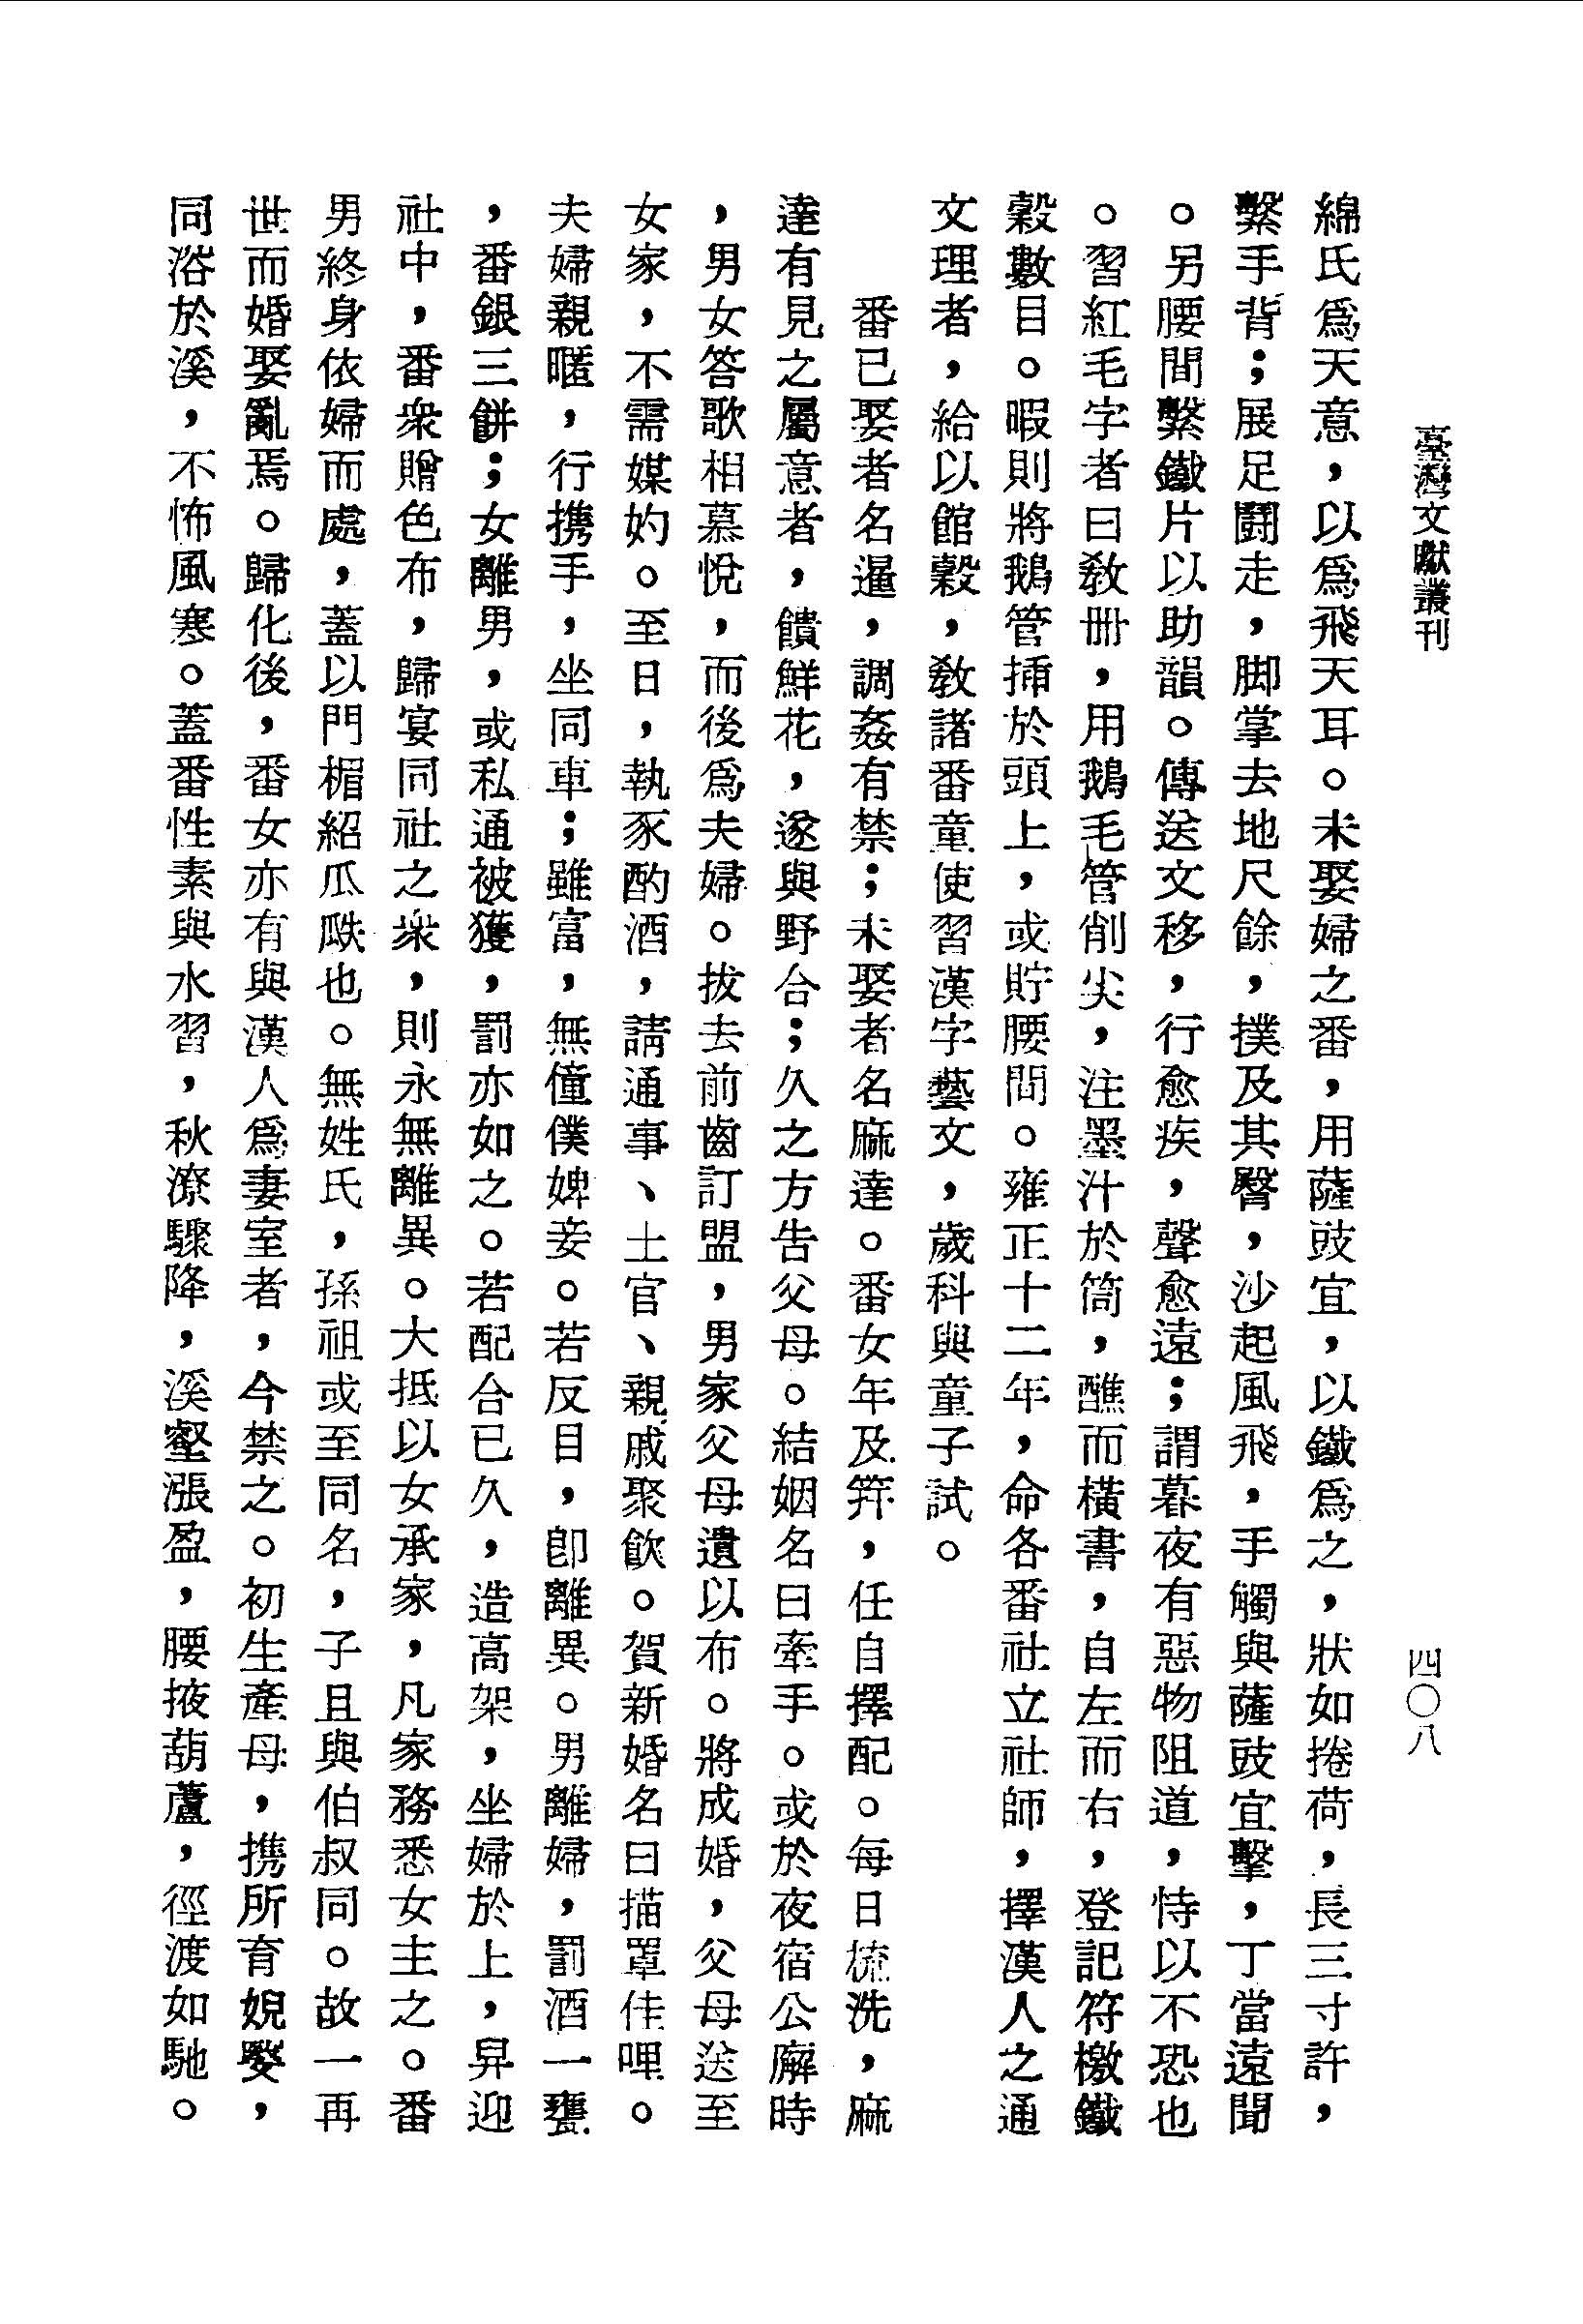 臺灣文獻叢刊
四〇八
綿氏爲天意，以爲飛天耳。未娶婦之番，用薩豉宜，以鐵爲之，狀如捲荷，長三寸許，
繫手背；展足鬪走，脚掌去地尺餘，撲及其臀，沙起風飛，手觸與薩豉宜擊，丁當遠聞
。另腰間繫鐵片以助韻。傳送文移，行愈疾，聲愈遠；謂暮夜有惡物阻道，恃以不恐也
。習紅毛字者曰敎冊，用鵝毛管削尖，注墨汁於筒，醮而橫書，自左而右，登記符檄鐵
穀數目。暇則將鵝管揷於頭上，或貯腰間。雍正十二年，命各番社立社師，擇漢人之通
文理者，給以館穀，敎諸番童使習漢字藝文，歲科與童子試。
番已娶者名暹，調姦有禁；未娶者名麻達。番女年及筓，任自擇配。每日梳洗，麻
達有見之屬意者，饋鮮花，遂與野合；久之方吿父母。結姻名曰牽手。或於夜宿公廨時
，男女答歌相慕悅，而後爲夫婦。拔去前齒訂盟，男家父母遺以布。將成婚，父母送至
女家，不需媒妁。至日，執豕酌酒，請通事、土官、親戚聚飮。賀新婚名曰描罩佳哩。
夫婦親暱，行携手，坐同車；雖富，無僮僕婢妾。若反目，卽離異。男離婦，罰酒一甕
，番銀三餅；女離男，或私通被獲，罰亦如之。若配合已久，造高架，坐婦於上，舁迎
社中，番衆贈色布，歸宴同社之衆，則永無離異。大抵以女承家，凡家務悉女主之。番
男終身依婦而處，蓋以門楣紹瓜瓞也。無姓氏，孫祖或至同名，子且與伯叔同。故一再
世而婚娶亂焉。歸化後，番女亦有與漢人爲妻室者，今禁之。初生產母，携所育婗嫛，
同浴於溪，不怖風寒。蓋番性素與水習，秋潦驟降，溪壑漲盈，腰掖葫蘆，徑渡如馳。